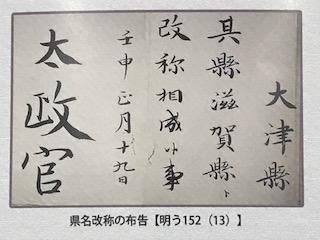 大津縣
其縣滋賀縣ト
改称相成候事
壬申正月十九日
太政官
県名改称の布告【明う152（13）】